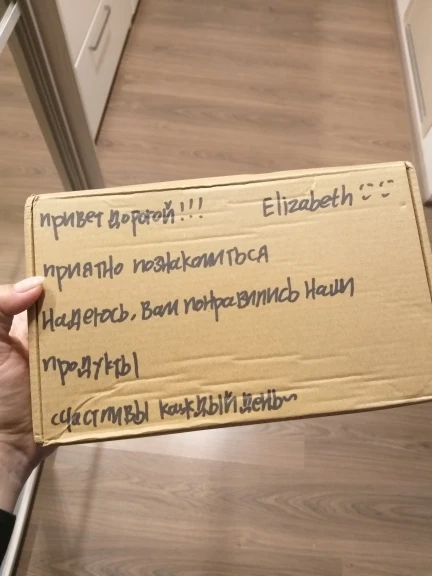 привет дорогой!!! Elizabeth
приятно познакомиться
Надеюсь, Вам понравились Наши
продукты
счастливы каждый день~